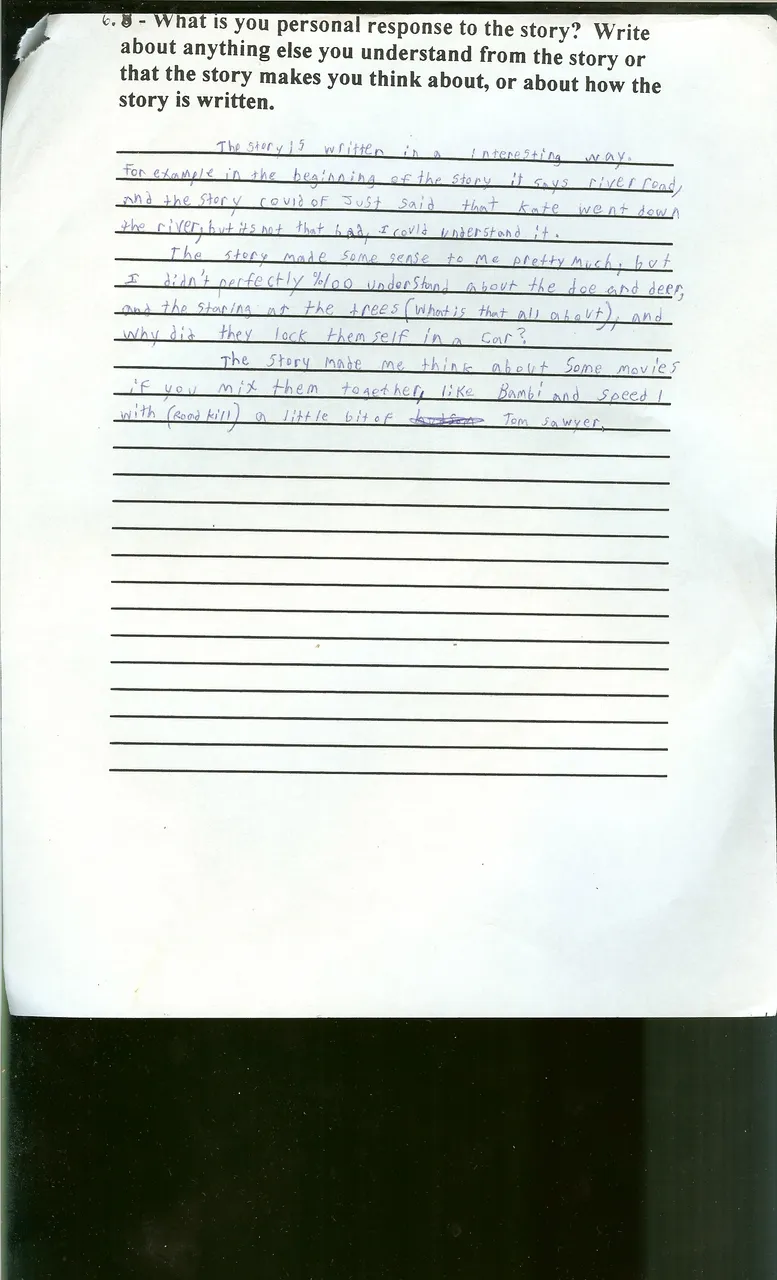 6. 8 - What is you personal response to the story? Write
about anything else you understand from the story or
that the story makes you think about, or about how the
story is written.
The story is written in a interesting way.
For example in the beginning of the story it says river road,
and the story could of just said that Kate went down
the river, but its not that bad, I could understand it.
The story made some sense to me pretty much, but
I didn't perfectly %100 understand about the doe and deer,
and the staring at the trees (what is that all about), and
why did they lock themself in a car?
The story made me think about some movies
if you mix them together, like Bambi and Speed 1
with (Road kill) a little bit of Tom Sawyer,